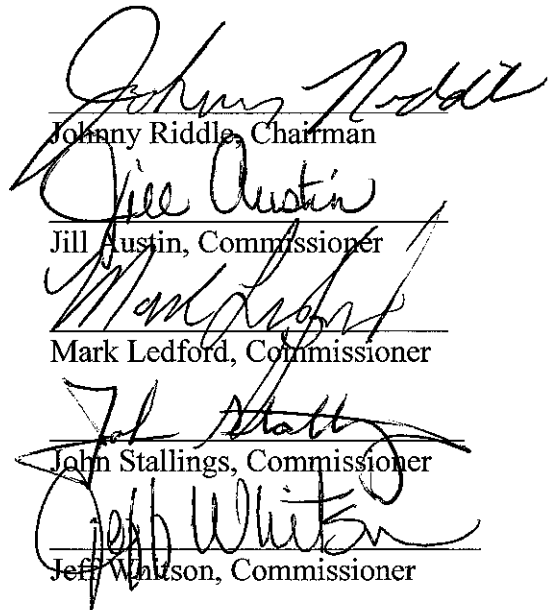 Johnny Riddle
Johnny Riddle, Chairman
Jill Austin
Jill Austin, Commissioner
Mark Ledford
Mark Ledford, Commissioner
John Stallings, Commissioner
Jeff Whitson
Jeff Whitson, Commissioner